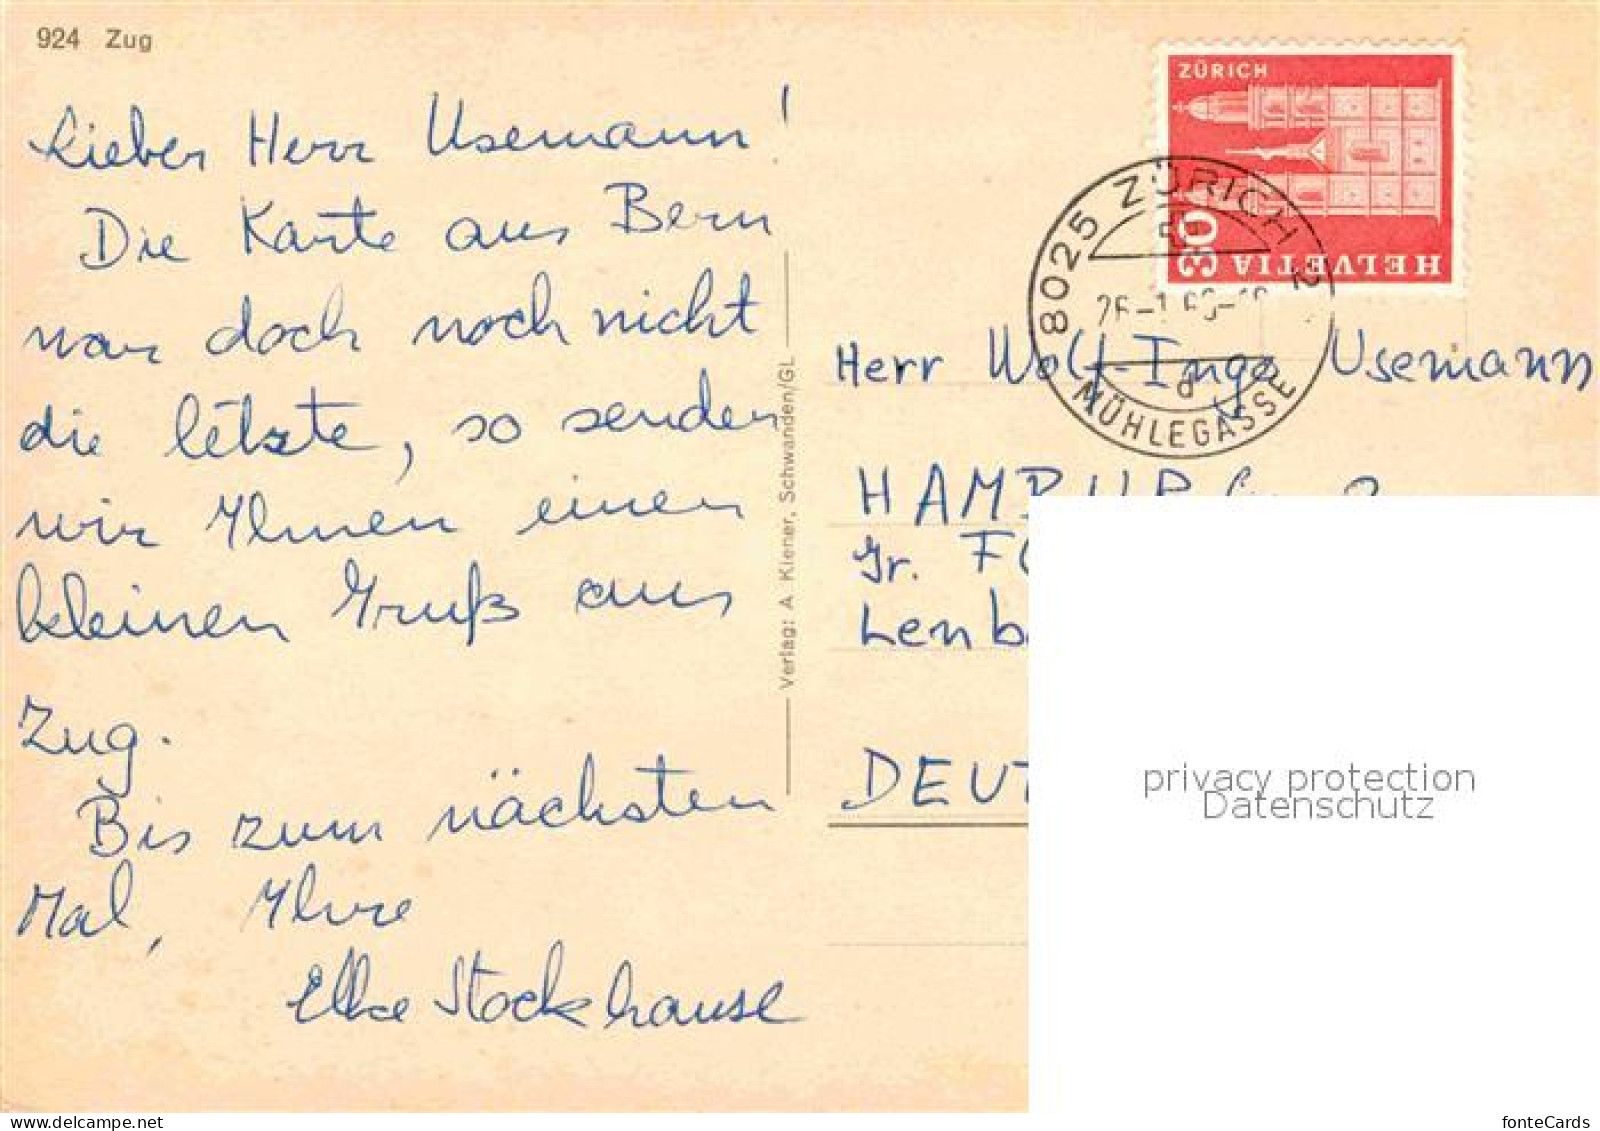 924 Zug
Lieber Herr Usemann!
Die Karte aus Bern
war doch noch nicht
die letzte, so senden
wir Ihnen einen
kleinen Gruß aus
Zug.
Bis zum nächsten
Mal, Ihre
Elke Stockhause
Verlag: A. Kiener, Schwanden/GL
ZÜRICH
30
HELVETIA
8025 ZÜRICH 2
MÜHLEGASSE
Herr Wolf-Ingo Usemann
HAMBURG
Gr.
DEUT
privacy protection
Datenschutz
www.delcampe.net
fonteCards